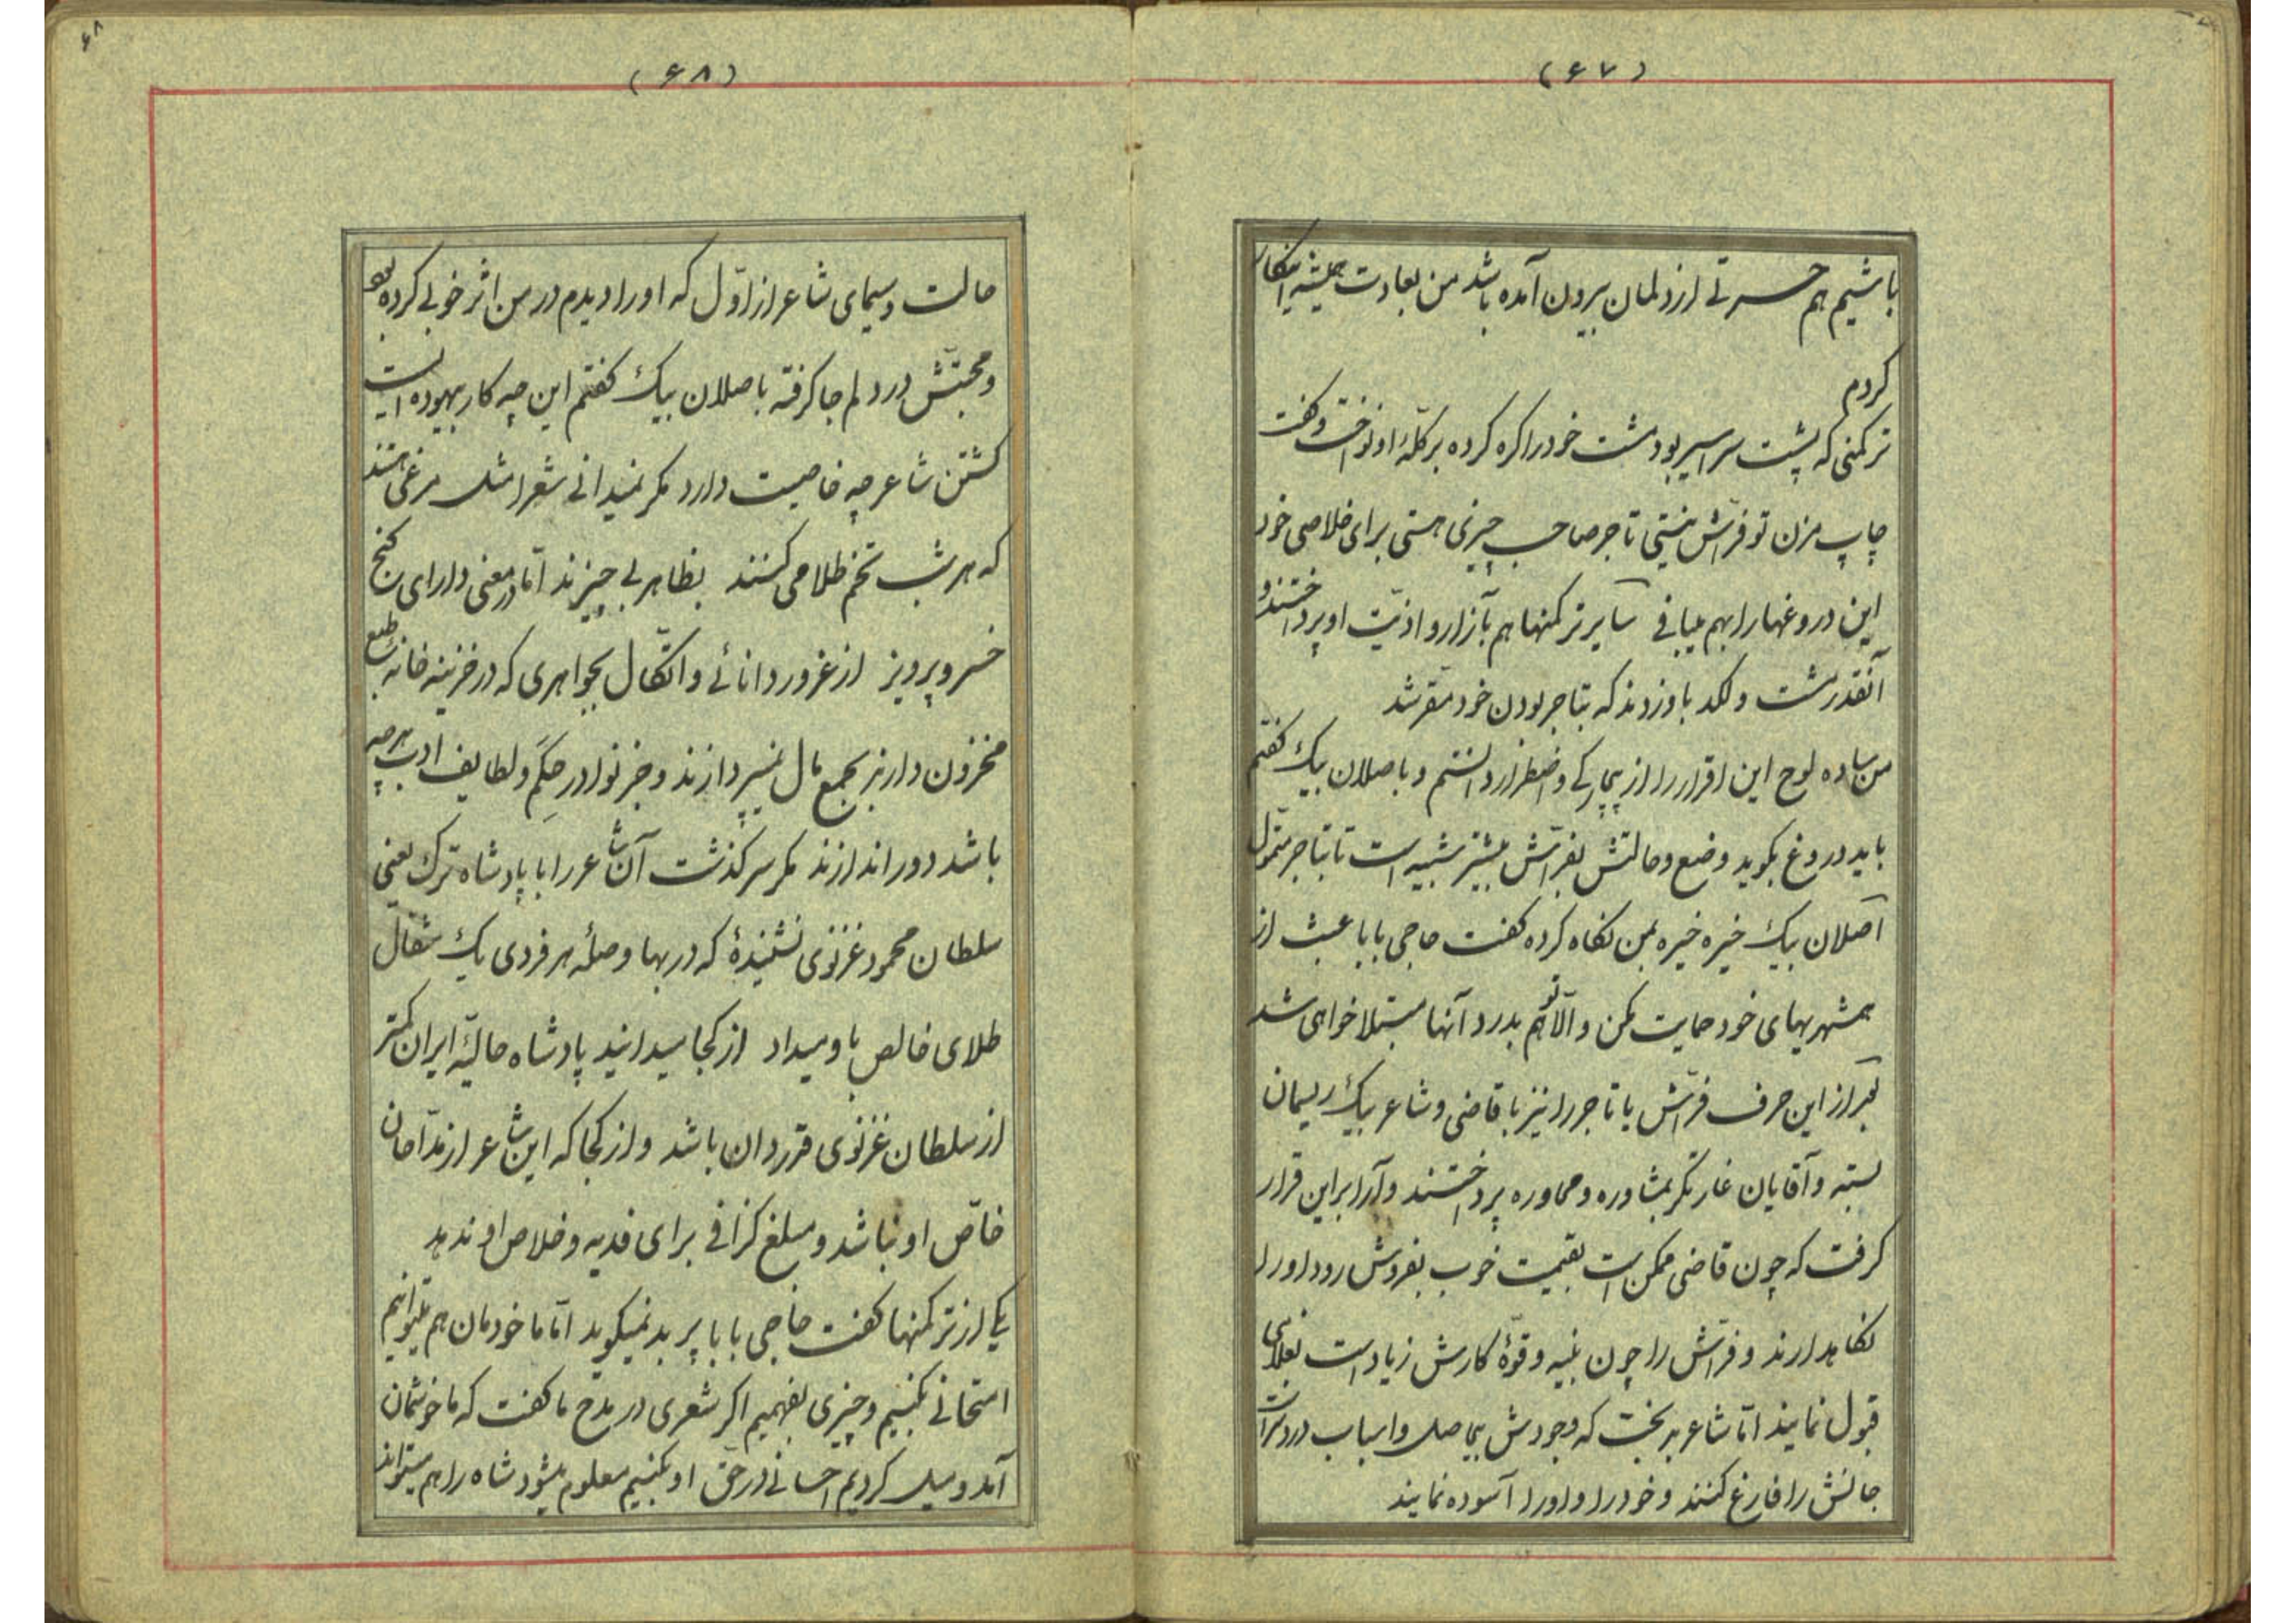 (۶۷)
باشیم هم حسرتی از دلمان بیرون آمده باشد من بعادت همیشه انکار
کردم
ترکمنی که پشت سر اسیر بود مشت خود را کره کرده بر کلّهٔ او نواخت و کفت
چاپ مزن تو فرّاش نیستی تاجر صاحب چیزی هستی برای خلاصی خود
این دروغها را بهم میبافی سایر ترکمنها هم بآزار و اذیّت او پرداختند و
آنقدر مشت و لکد باو زدند که بتاجر بودن خود مقر شد
من ساده لوح این اقرار را از بیچارکی و اضطرار دانستم و باصلان بیک کفتم
باید دروغ بکوید وضع و حالتش بفرّاش بیشتر شبیه است تا بتاجر متموّل
اصلان بیک خیره خیره بمن نکاه کرده کفت حاجی بابا عبث از
همشهریهای خود حمایت مکن و الّا تو هم بدرد آنها مبتلا خواهی شد
بعد از این حرف فرّاش یا تاجر را نیز با قاضی و شاعر بیک ریسمان
بسته و آقایان غارتکر بمشاوره و محاوره پرداختند و آرا بر این قرار
کرفت که چون قاضی ممکن است بقیمت خوب بفروش رود او را
نکاهدارند و فرّاش را چون بنیه و قوّهٔ کارش زیاد است بغلامی
قبول نمایند امّا شاعر بدبخت که وجودش بیحاصل و اسباب دردسر است
جانش را فارغ کنند و خود را و او را آسوده نمایند
(۶۸)
۶۸
حالت و سیمای شاعر از اوّل که او را دیدم در من اثر خوبی کرده بود
و محبّتش در دلم جا کرفته باصلان بیک کفتم این چه کار بیهوده ایست
کشتن شاعر چه خاصیت دارد مکر نمیدانی شعرا مثل مرغی هستند
که هر شب تخم طلا می کنند بظاهر بی چیزند امّا در معنی دارای کنج
خسرو پرویز از غرور دانائی و اتّکال بجواهری که در خزینه خانهٔ طبع
مخزون دارند بجمع مال نمیپردازند و جز نوادر حِکَم و لطایف ادب هر چه
باشد دور اندازند مکر سرکذشت آن شاعر را با پادشاه ترک یعنی
سلطان محمود غزنوی نشنیدهٔ که در بها و صلهٔ هر فردی یک مثقال
طلای خالص باو میداد از کجا میدانید پادشاه حالیّهٔ ایران کمتر
از سلطان غزنوی قدردان باشد و از کجا که این شاعر از مدّاحان
خاصّ او نباشد و مبلغ کزافی برای فدیه و خلاص او ندهد
یکی از ترکمنها کفت حاجی بابا پر بد نمیکوید امّا ما خودمان هم میتوانیم
امتحانی بکنیم و چیزی بفهمیم اکر شعری در مدح ما کفت که ما خوشمان
آمد و میل کردیم احسانی در حقّ او بکنیم معلوم میشود شاه را هم میتواند